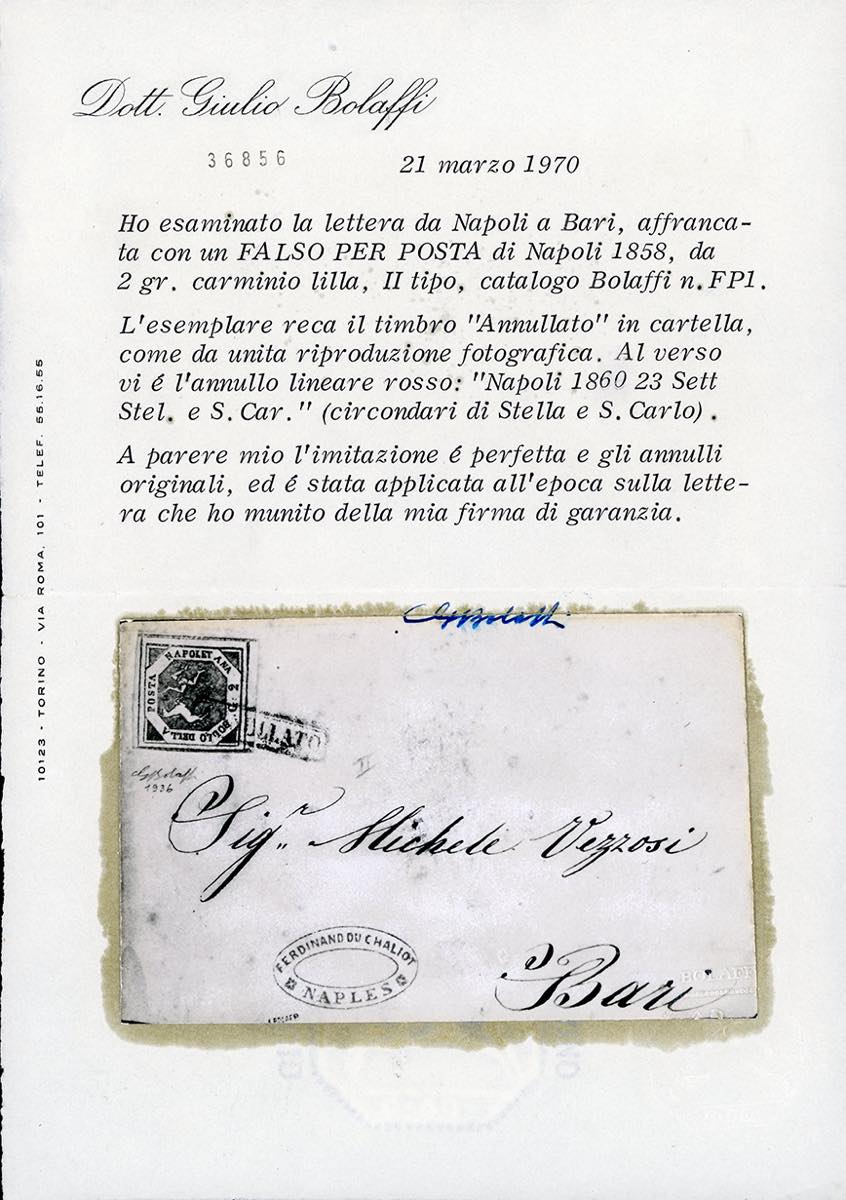 Dott. Giulio Bolaffi
36856
21 marzo 1970
Ho esaminato la lettera da Napoli a Bari, affranca-
ta con un FALSO PER POSTA di Napoli 1858, da
2 gr. carminio lilla, II tipo, catalogo Bolaffi n. FP1.
L'esemplare reca il timbro "Annullato" in cartella,
come da unita riproduzione fotografica. Al verso
vi é l'annullo lineare rosso: "Napoli 1860 23 Sett
Stel. e S. Car." (circondari di Stella e S. Carlo).
A parere mio l'imitazione é perfetta e gli annulli
originali, ed é stata applicata all'epoca sulla lette-
ra che ho munito della mia firma di garanzia.
10123 - TORINO - VIA ROMA, 101 - TELEF. 55.16.55
GBolaffi
BOLLO DELLA
POSTA
NAPOLETANA
G. 2
LLATO
II
GBolaffi
1936
Sig.r Michele Vezzosi
FERDINAND DU CHALIOT
NAPLES
Bari
BOLAFFI